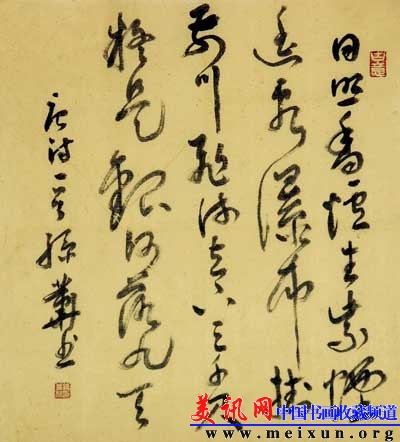 日照香爐生紫烟
遥看瀑布掛
前川飛流直下三千尺
疑是銀河落九天
唐詩一首孫華書
美讯网 中国书画收藏频道
www.meixun.org